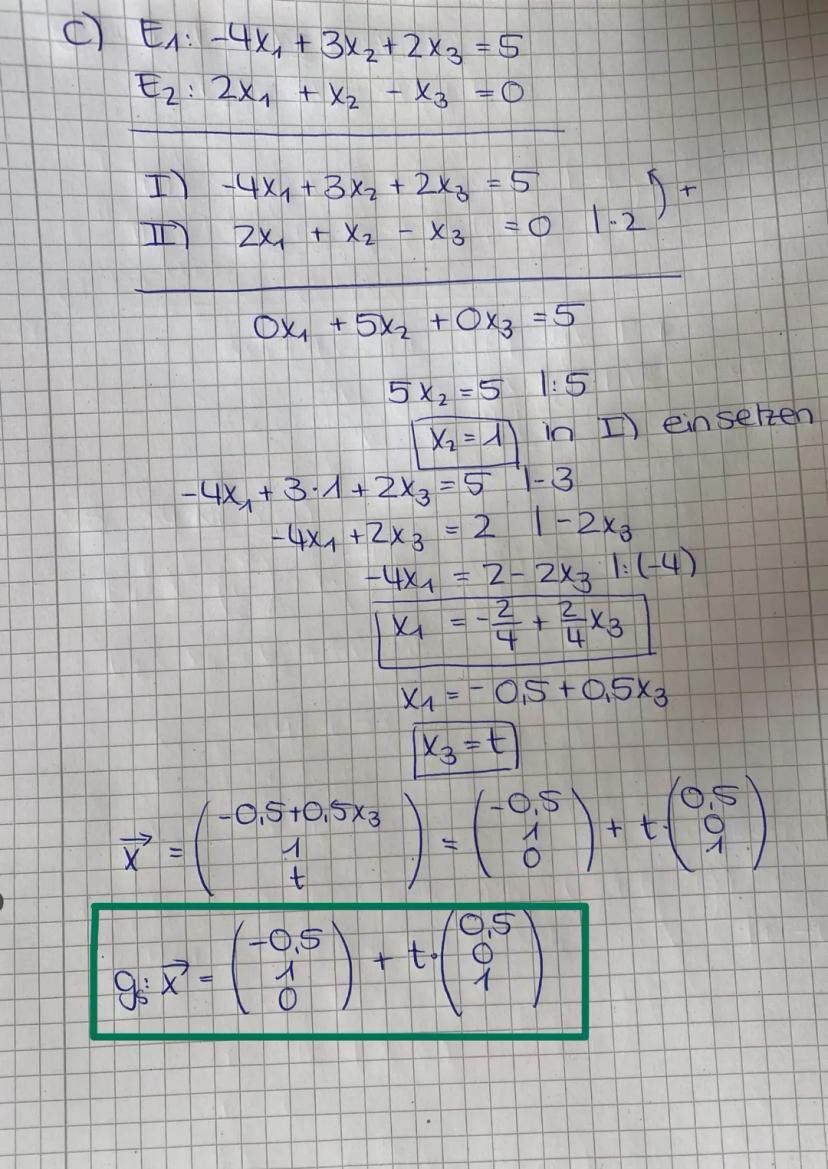 c) E₁: -4x₁ + 3x₂ + 2x₃ = 5
E₂: 2x₁ + x₂ - x₃ = 0
I) -4x₁ + 3x₂ + 2x₃ = 5
II) 2x₁ + x₂ - x₃ = 0 |·2 ) +
0x₁ + 5x₂ + 0x₃ = 5
5x₂ = 5 |:5
x₂ = 1 in I) einsetzen
-4x₁ + 3·1 + 2x₃ = 5 |-3
-4x₁ + 2x₃ = 2 |-2x₃
-4x₁ = 2 - 2x₃ |:(-4)
x₁ = -2/4 + 2/4 x₃
x₁ = -0,5 + 0,5x₃
x₃ = t
x⃗ = (-0,5+0,5x₃ 1 t) = (-0,5 1 0) + t·(0,5 0 1)
gₛ: x⃗ = (-0,5 1 0) + t·(0,5 0 1)